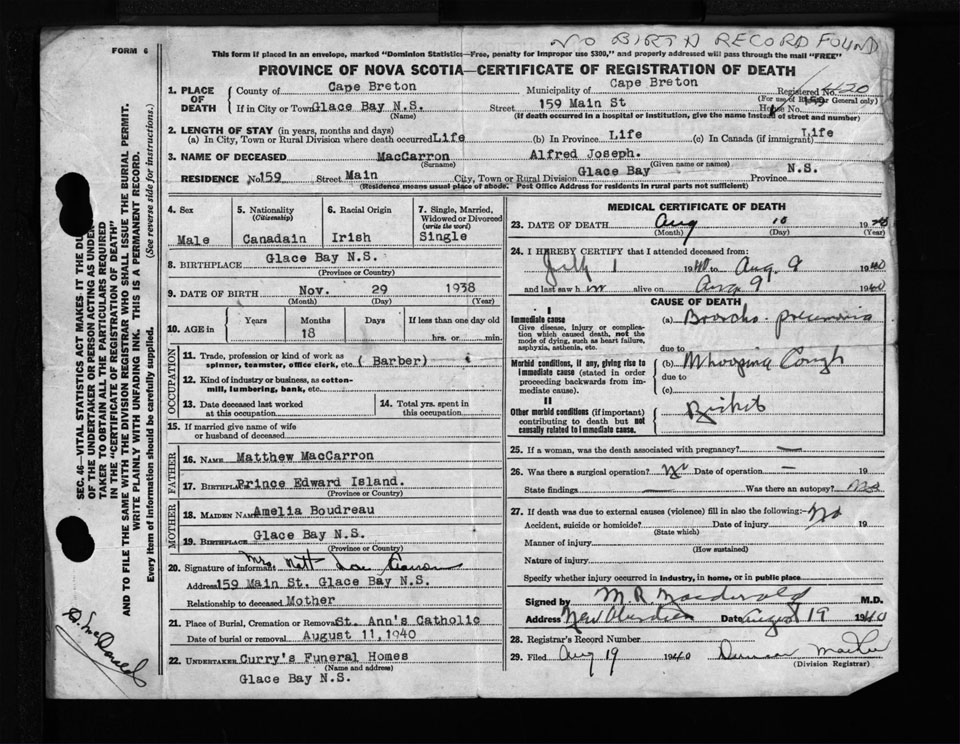 NO BIRTH RECORD FOUND
FORM 6
This form if placed in an envelope, marked "Dominion Statistics—Free, penalty for improper use $300," and properly addressed will pass through the mail "FREE"
PROVINCE OF NOVA SCOTIA—CERTIFICATE OF REGISTRATION OF DEATH
1. PLACE OF DEATH
County of Cape Breton Municipality of Cape Breton Registered No.
(For use of Registrar General only)
If in City or Town Glace Bay N.S. Street 159 Main St House No.
(Name) (If death occurred in a hospital or institution, give the name instead of street and number)
2. LENGTH OF STAY (in years, months and days)
(a) In City, Town or Rural Division where death occurred Life (b) In Province Life (c) In Canada (if immigrant) Life
3. NAME OF DECEASED MacCarron Alfred Joseph.
(Surname) (Given name or names)
RESIDENCE No 159 Street Main City, Town or Rural Division Glace Bay Province N.S.
(Residence means usual place of abode. Post Office Address for residents in rural parts not sufficient)
4. Sex 5. Nationality (Citizenship) 6. Racial Origin 7. Single, Married, Widowed or Divorced (write the word)
Male Canadain Irish Single
8. BIRTHPLACE Glace Bay N.S.
(Province or Country)
9. DATE OF BIRTH Nov. 29 1938
(Month) (Day) (Year)
10. AGE in Years Months Days If less than one day old
18 hrs. or min.
OCCUPATION
11. Trade, profession or kind of work as spinner, teamster, office clerk, etc. (Barber)
12. Kind of industry or business, as cotton-mill, lumbering, bank, etc.
13. Date deceased last worked at this occupation
14. Total yrs. spent in this occupation
15. If married give name of wife or husband of deceased
FATHER
16. NAME Matthew MacCarron
17. BIRTHPLACE Prince Edward Island.
(Province or Country)
MOTHER
18. MAIDEN NAME Amelia Boudreau
19. BIRTHPLACE Glace Bay N.S.
(Province or Country)
20. Signature of informant Mrs.
Address 159 Main St. Glace Bay N.S.
Relationship to deceased Mother
21. Place of Burial, Cremation or Removal St. Ann's Catholic
Date of burial or removal August 11, 1940
22. UNDERTAKER Curry's Funeral Homes
(Name and address)
Glace Bay N.S.
MEDICAL CERTIFICATE OF DEATH
23. DATE OF DEATH Aug 10 19
(Month) (Day) (Year)
24. I HEREBY CERTIFY that I attended deceased from:
July 1 1940 to Aug. 9 1940
and last saw h im alive on Aug 9 1940
CAUSE OF DEATH
I
Immediate cause
Give disease, injury or complication which caused death, not the mode of dying, such as heart failure, asphyxia, asthenia, etc.
(a) Broncho-pneumonia
due to
Morbid conditions, if any, giving rise to immediate cause (stated in order proceeding backwards from immediate cause).
(b) Whooping Cough
due to
(c)
II
Other morbid conditions (if important) contributing to death but not causally related to immediate cause.
Rickets
25. If a woman, was the death associated with pregnancy? —
26. Was there a surgical operation? No Date of operation — 19
State findings — Was there an autopsy? No
27. If death was due to external causes (violence) fill in also the following: No
Accident, suicide or homicide? Date of injury 19
(State which)
Manner of injury
(How sustained)
Nature of injury
Specify whether injury occurred in industry, in home, or in public place
Signed by M.R. Macdonald M.D.
Address New Aberdeen Date August 19 1940
28. Registrar's Record Number
29. Filed Aug 19 1940 Duncan
(Division Registrar)
SEC. 46—VITAL STATISTICS ACT MAKES IT THE DUTY OF THE UNDERTAKER OR PERSON ACTING AS UNDERTAKER TO OBTAIN ALL THE PARTICULARS REQUIRED IN THE "CERTIFICATE OF REGISTRATION OF DEATH" AND TO FILE THE SAME WITH THE DIVISION REGISTRAR WHO SHALL ISSUE THE BURIAL PERMIT.
WRITE PLAINLY WITH UNFADING INK. THIS IS A PERMANENT RECORD.
Every item of information should be carefully supplied. (See reverse side for instructions.)